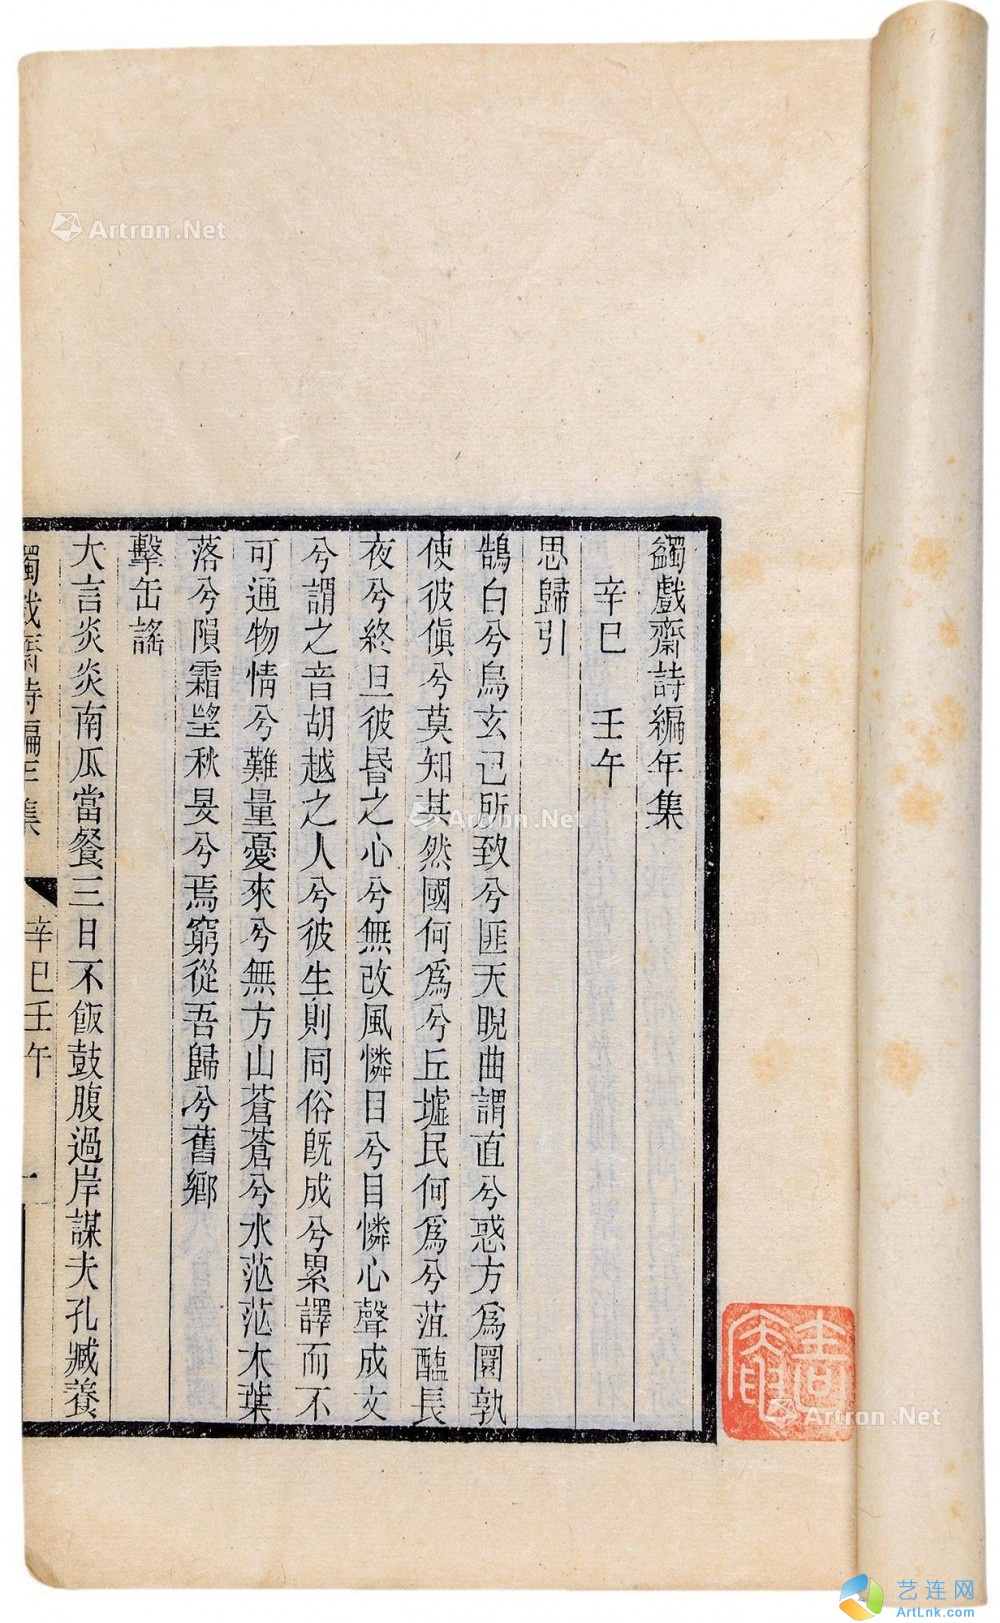 蠲戲齋詩編年集
辛巳　壬午
思歸引
鵠白兮烏玄己所致兮匪天睨曲謂直兮惑方爲圜孰
使彼傎兮莫知其然國何爲兮丘墟民何爲兮菹醢長
夜兮終旦彼昬之心兮無改風憐目兮目憐心聲成文
兮謂之音胡越之人兮彼生則同俗旣成兮累譯而不
可通物情兮難量憂來兮無方山蒼蒼兮水茫茫木葉
落兮隕霜望秋旻兮焉窮從吾歸兮舊鄉
擊缶謠
大言炎炎南瓜當餐三日不飯鼓腹過岸謀夫孔臧養
蠲戲齋詩編年集
辛巳壬午
一
Artron.Net
Artron.Net
Artron.Net
艺连网
ArtLnk.com